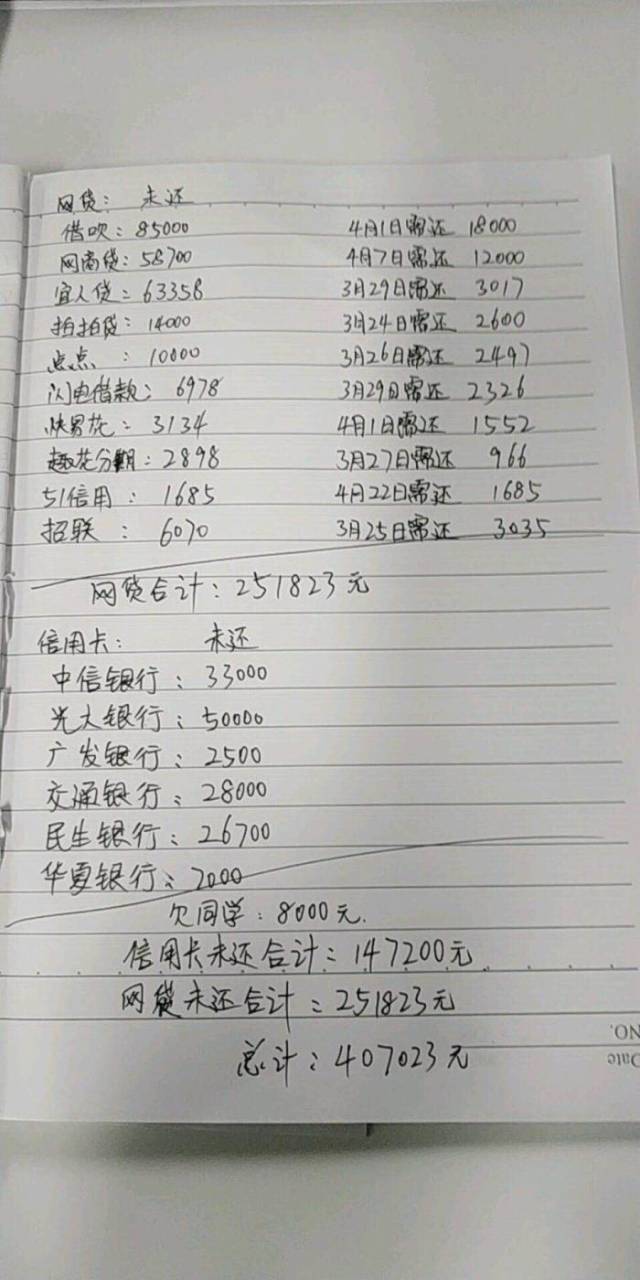 网贷： 未还
借呗：85000 4月1日需还 18000
网商贷：58700 4月7日需还 12000
宜人贷：63358 3月29日需还 3017
拍拍贷：14000 3月24日需还 2600
点点：10000 3月26日需还 2497
闪电借款：6978 3月29日需还 2326
快易花：3134 4月1日需还 1552
趣花分期：2898 3月27日需还 966
51信用：1685 4月22日需还 1685
招联：6070 3月25日需还 3035
网贷合计：251823元
信用卡： 未还
中信银行：33000
光大银行：50000
广发银行：2500
交通银行：28000
民生银行：26700
华夏银行：7000
欠同学：8000元.
信用卡未还合计：147200元
网贷未还合计：251823元
总计：407023元
NO.
Date